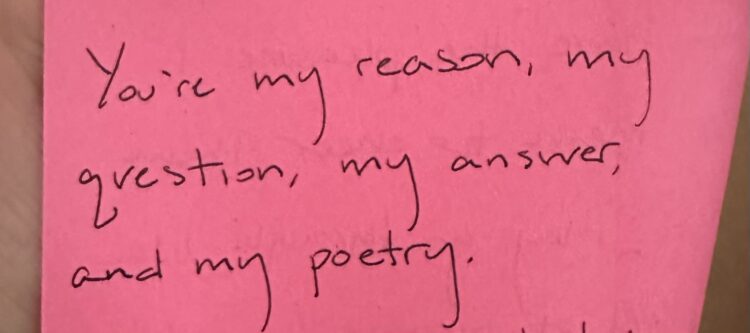 You're my reason, my
question, my answer,
and my poetry.